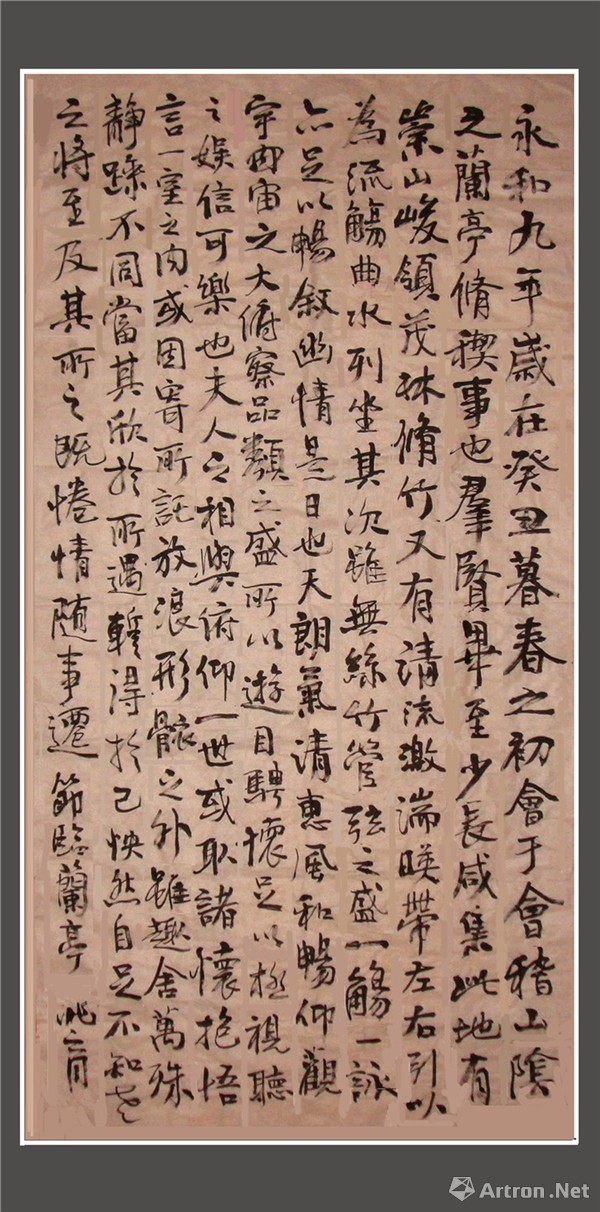 永和九年歲在癸丑暮春之初會于會稽山陰
之蘭亭脩稧事也羣賢畢至少長咸集此地有
崇山峻領茂林脩竹又有清流激湍暎帶左右引以
為流觴曲水列坐其次雖無絲竹管弦之盛一觴一詠
亦足以暢敘幽情是日也天朗氣清惠風和暢仰觀
宇宙之大俯察品類之盛所以遊目騁懷足以極視聽
之娛信可樂也夫人之相與俯仰一世或取諸懷抱悟
言一室之內或因寄所託放浪形骸之外雖趣舍萬殊
靜躁不同當其欣於所遇輙得於己怏然自足不知老
之將至及其所之既惓情隨事遷 節臨蘭亭
Artron.Net